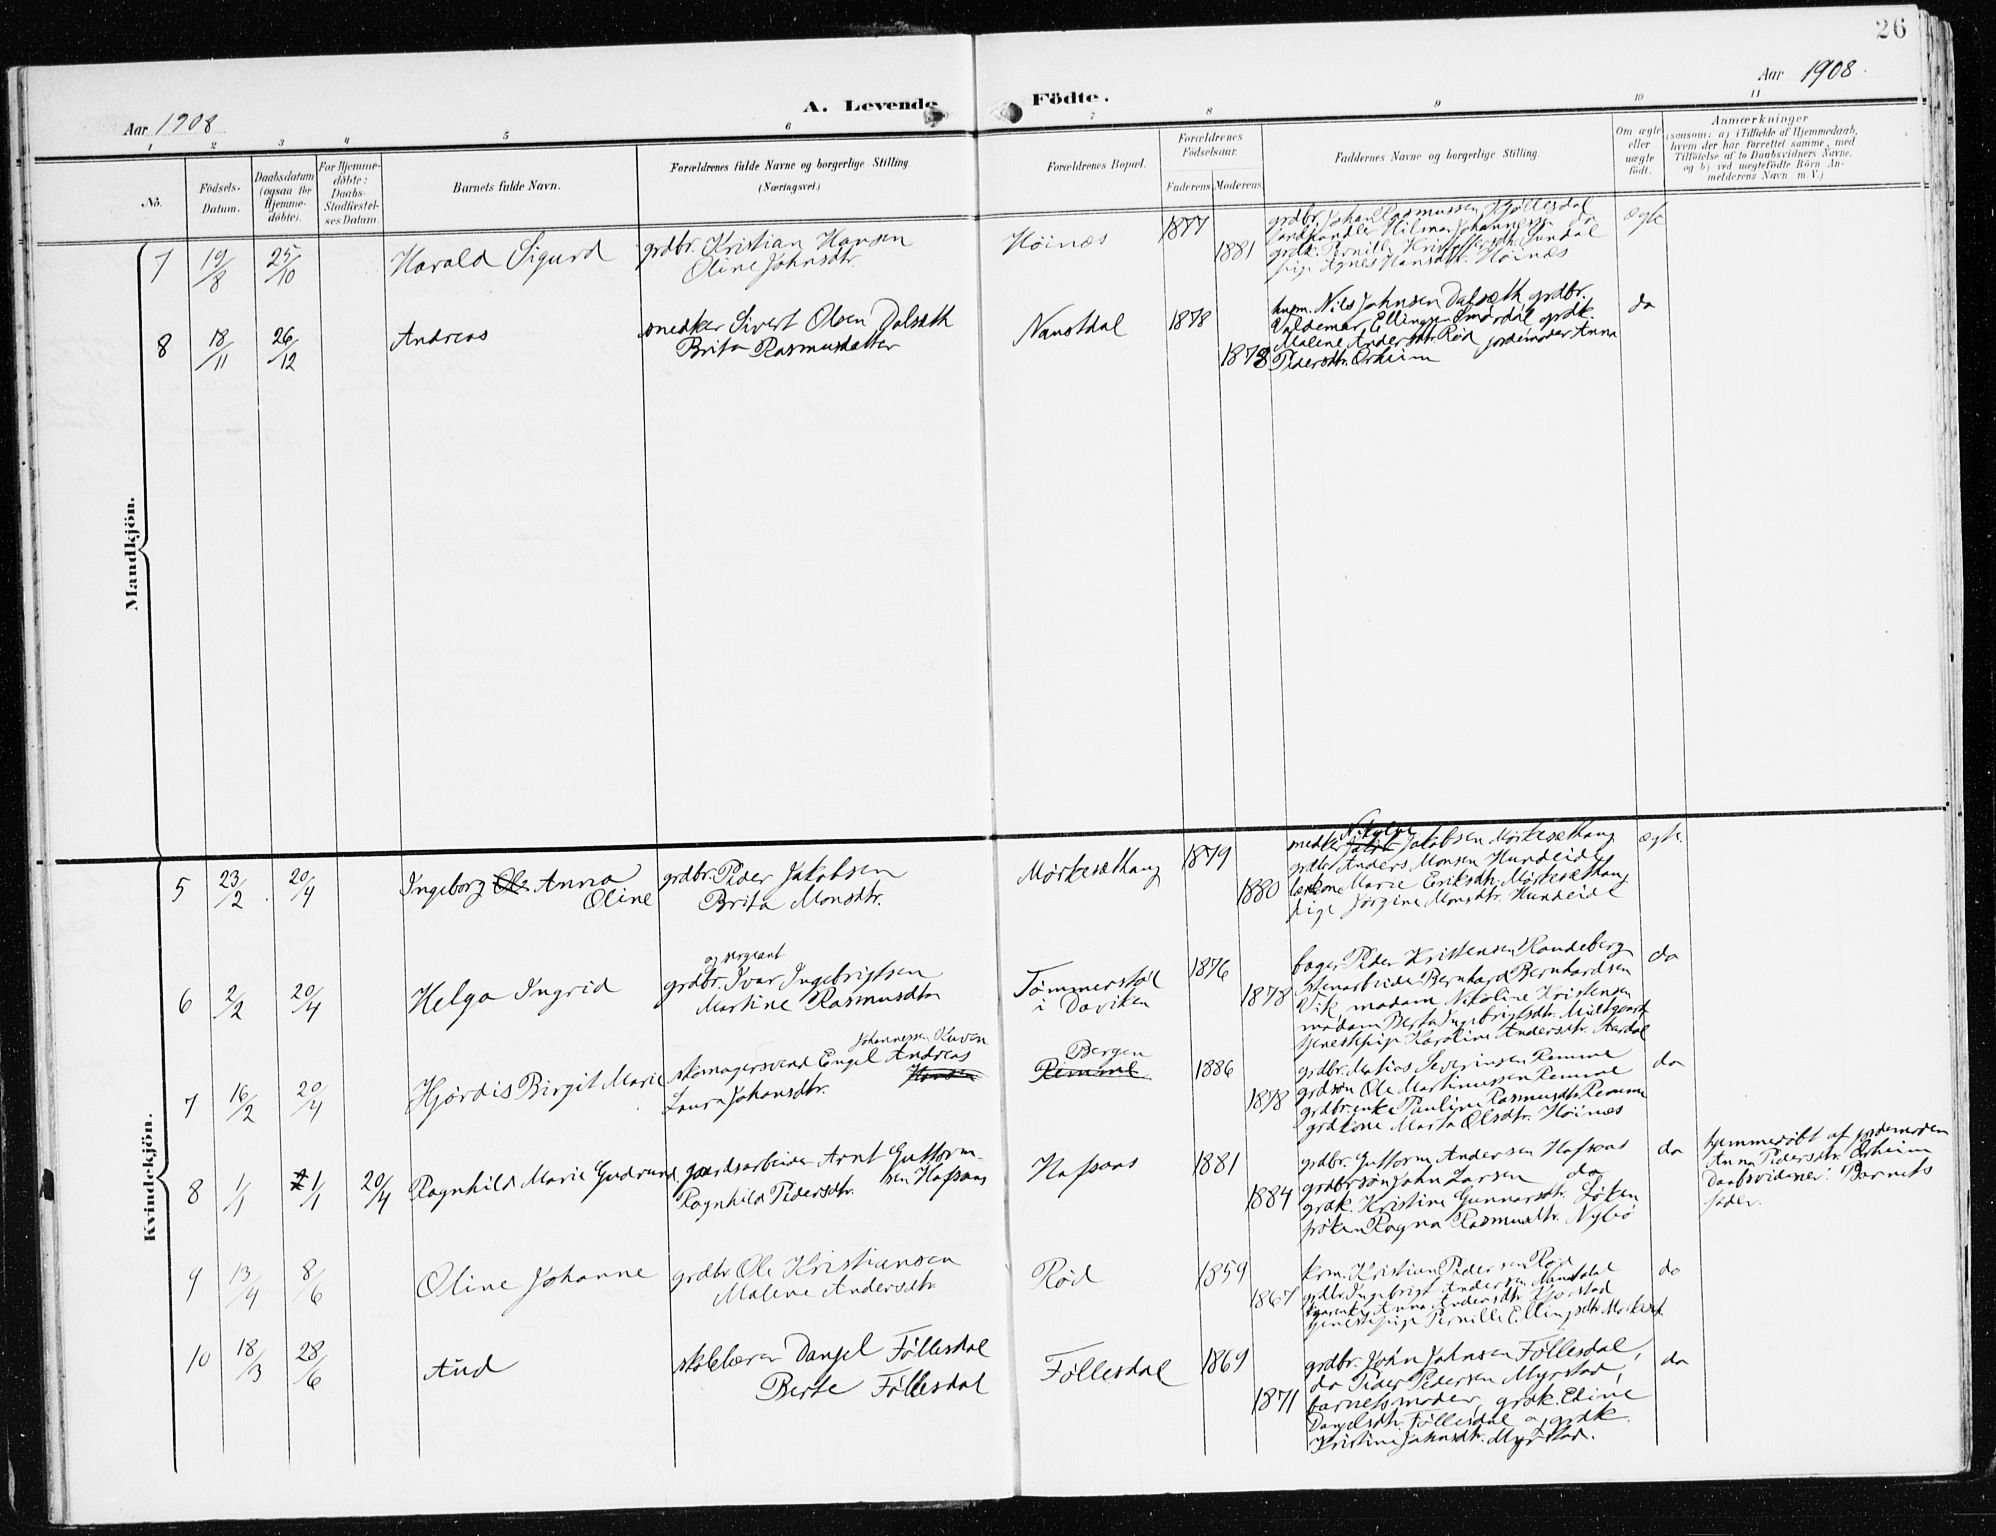 26
Aar 1908.
A. Levende Födte.
Aar 1908
1 2 3 4 5 6 7 8 9 10 11
No.
Födsels-Datum.
Daabsdatum (ogsaa for Hjemme-döbte).
For Hjemme-döbte: Daabs-Stadfæstel-ses Datum.
Barnets fulde Navn.
Forældrenes fulde Navne og borgerlige Stilling
(Næringsvei.)
Forældrenes Bopæl.
Forældrenes Födselsaar.
Faderens Moderens
Faddernes Navne og borgerlige Stilling.
Om ægte eller uægte födt.
Anmærkninger
(saasom: a) i Tilfælde af Hjemmedaab,
hvem der har forrettet samme, med
Tilföielse af to Daabsvidners Navne.
og b) ved uegtefödte Börn An-
melderens Navn m. V.)
Mandkjön.
7 19/8 25/10 Harald Sigurd
grdbr. Kristian Hansen
Oline Johnsdtr.
Höinæs 1877 1881
grdbr. Johan Rasmussen Föllesdal
landhandler Hilmar Johannessen do
grdk. Pernille Kristoffersdtr. Sundal
pige Agnes Hansdtr. Höinæs
ægte
8 18/11 26/12 Andreas
snedker Sivert Olsen Dalsæth
Brita Rasmusdatter
Naustdal 1878 1878
husm. Nils Johnsen Dalsæth grdbr.
Valdemar Ellingsen Smördal grdk.
Malene Andersdtr. Röd jordemoder Anna
Pedersdtr. Örheim
do
Kvindekjön.
5 23/2 20/4 Ingeborg Ole Anna
Oline
grdbr. Peder Jakobsen
Brita Monsdtr.
Mörkesæthaug 1879 1880
Nikolai
snedker Jakob Jakobsen Mörkesæthaug
grdbr. Anders Monsen Hundeide
kone Marie Eriksdtr. Mörkesæthaug
pige Jörgine Monsdtr. Hundeide
ægte.
6 2/2 20/4 Helga Ingrid
og sergeant
grdbr. Ivar Ingebrigtsen
Martine Rasmusdtr
Tömmerstöl
i Daviken
1876 1878
bager Peder Kristensen Raudeberg
stenarbeider Bernhard Bernhardsen
Vik, madam Nikoline Kristensen
madam Berta Ingebrigtsdtr.
tjenestepige Karoline Andersdtr. Aardal
do
7 16/2 20/4 Hjördis Birgit Marie
Johannessen Raven
skomagersvend Engel Andreas
Hansen
Laura Johansdtr.
Bergen
Remme
1886 1878
grdbr. Matias Severinsen Remme
grdsön Ole Martinussen Remme
grdbr. enke Pauline Rasmusdtr. Remme
grdkone Marta Olsdtr. Höinæs
do
8 1/1 1/1 20/4 Ragnhild Marie Gudrun
gaardsarbeider Arnt Guttorm-
sen Hafsaas
Ragnhild Pedersdtr.
Hafsaas 1881 1884
grdbr. Guttorm Andersen Hafsaas
grdbrsön John Larsen do
grdk. Kristine Gunnarsdtr. Löken
fröken Ragna Rasmusdtr. Nybö
do
hjemmedöbt af jordemoder
Anna Pedersdtr. Örheim
Daabsvidner: Barnets
feder.
9 13/4 8/6 Oline Johanne
grdbr. Ole Kristiansen
Malene Andersdtr
Röd 1859 1867
krm. Kristian Pedersen Röd
grdbr. Ingebrigt Andersen Naustdal
Anna Andersdtr.
tjenestepige Pernille Ellingsdtr.
do
10 18/3 28/6 Aud
skolelærer Danjel Föllesdal
Berte Föllesdal
Föllesdal 1869 1871
grdbr. John Johnsen Föllesdal,
do Peder Pedersen Myrstad,
barnets moder, grdk. Eline
Danjelsdtr. Föllesdal og grdk.
Kristine Johnsdtr. Myrstad.
do